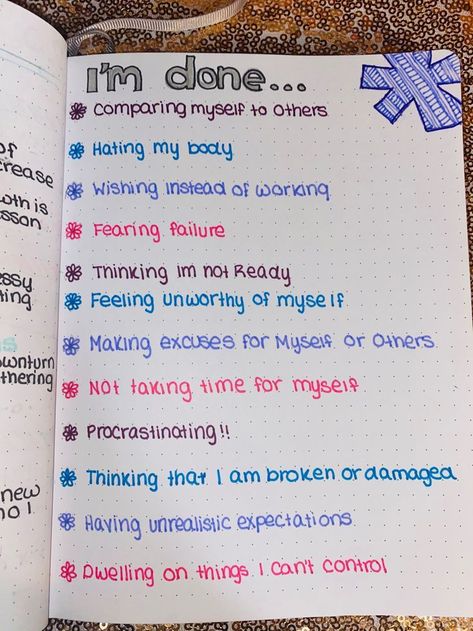 of
crease
wth is
sson
ssy
ting
wnturn
thering
new
I'm done...
Comparing myself to others
Hating my body
Wishing instead of working
Fearing failure
Thinking im not Ready
Feeling unworthy of myself
Making excuses for Myself or Others
Not taking time for myself
Procrastinating!!
Thinking that I am broken or damaged
Having unrealistic expectations
Dwelling on things I can't control